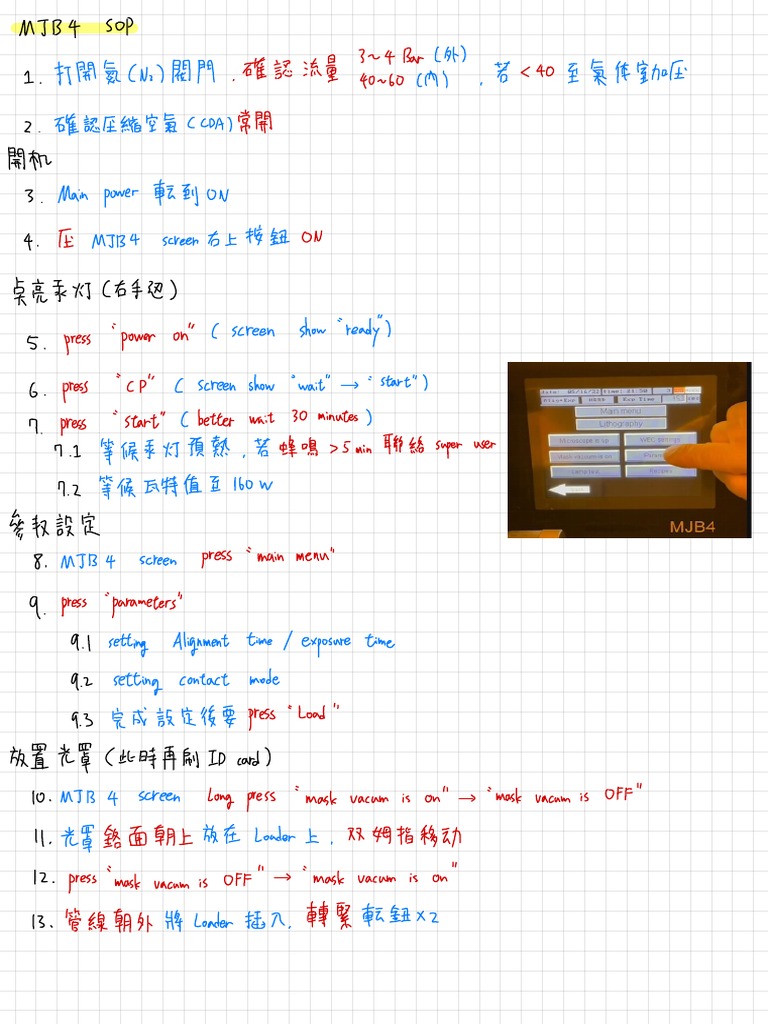 MJB4 SOP
1. 打開氮(N₂)閥門,確認流量 3~4 Bar (外) 40~60 (內),若 <40 至氣体室加圧
2. 確認圧縮空氣 (CDA) 常開
開机
3. Main power 転到 ON
4. 圧 MJB4 screen 右上按鈕 ON
点亮汞灯 (右手边)
5. press "power on" ( screen show "ready")
6. press "CP" ( screen show "wait" → "start")
7. press "start" ( better wait 30 minutes )
7.1 等候汞灯預熱,若蜂鳴 >5 min 聯絡 super user
7.2 等候瓦特值至 160 W
參数設定
8. MJB4 screen press "main menu"
9. press "parameters"
9.1 setting Alignment time / exposure time
9.2 setting contact mode
9.3 完成設定後要 press "Load"
放置光罩 (此時再刷 ID card)
10. MJB4 screen Long press "mask vacum is on" → "mask vacum is OFF"
11. 光罩鉻面朝上放在 Loader 上,双姆指移动
12. press "mask vacum is OFF" → "mask vacum is on"
13. 管線朝外將 Loader 插入,轉緊転鈕×2
Main menu
Lithography
MJB4